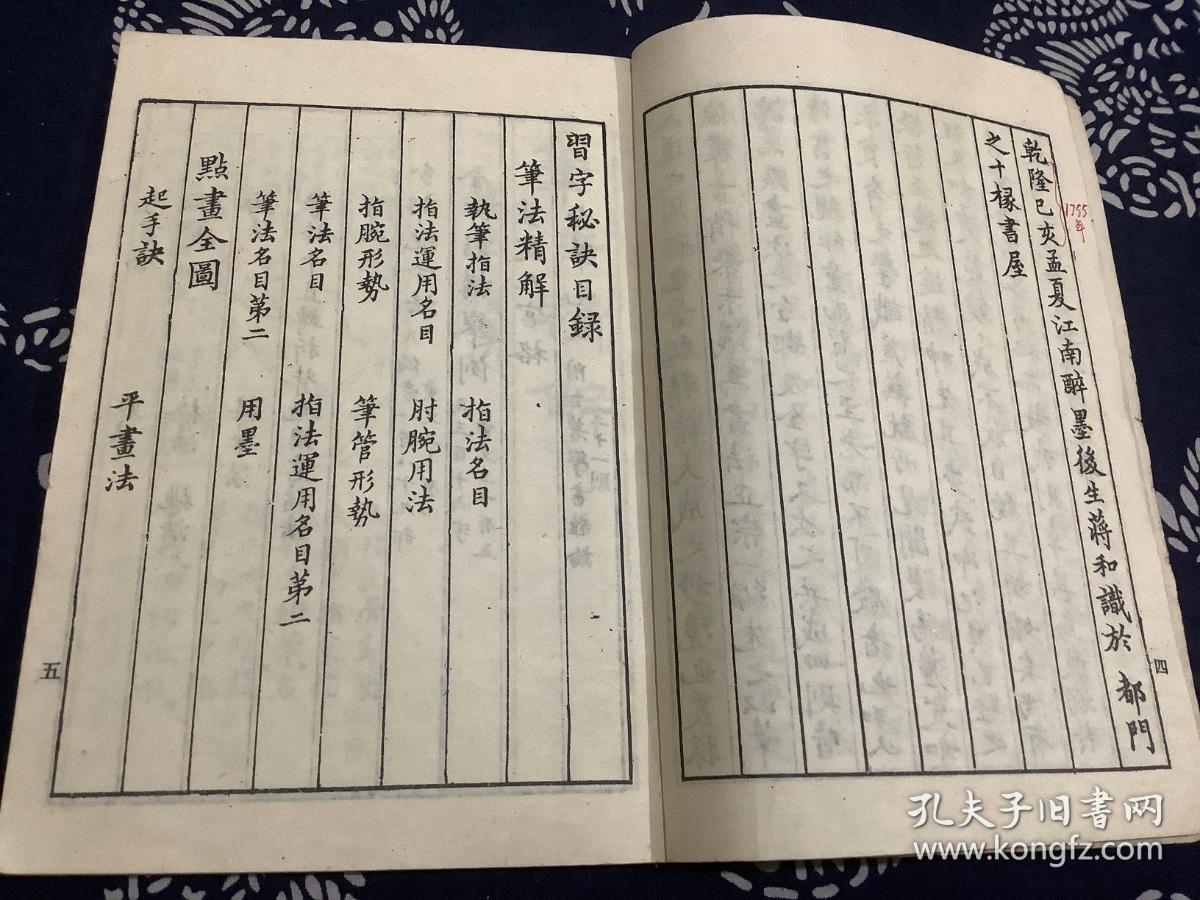 乾隆己亥孟夏江南醉墨後生蔣和識於 都門
之十椽書屋
1755
年
四
習字秘訣目録
筆法精解
執筆指法 指法名目
指法運用名目 肘腕用法
指腕形勢 筆管形勢
筆法名目 指法運用名目第二
筆法名目第二 用墨
點畫全圖
起手訣 平畫法
五
孔夫子旧书网
www.kongfz.com